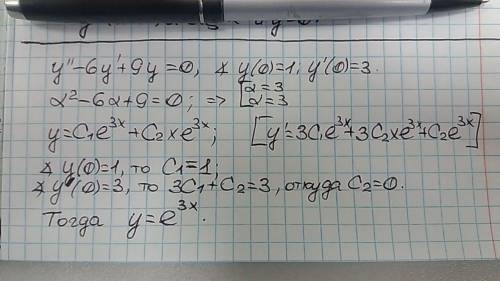 y''-6y'+9y=0, ∢ y(0)=1; y'(0)=3.
α²-6α+9=0; => [α=3 α=3
y=C₁e³ˣ+C₂xe³ˣ; [y'=3C₁e³ˣ+3C₂xe³ˣ+C₂e³ˣ]
∢ y(0)=1, то C₁=1;
∢ y'(0)=3, то 3C₁+C₂=3, откуда C₂=0.
Тогда y=e³ˣ.